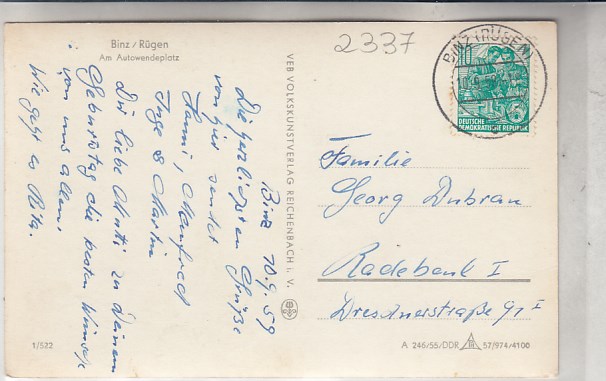 Binz / Rügen
Am Autowendeplatz
2337
BINZ (RÜGEN)
10
DEUTSCHE
DEMOKRATISCHE REPUBLIK
Binz 10.9.59
Die herzlichsten Grüße
von hier sendet
Hanni, Manfred
Inge & Martin
Dir liebe Mutti zu Deinem
Geburtstag die besten Wünsche
von uns allen.
Wie geht es Rita.
VEB VOLKSKUNSTVERLAG REICHENBACH i. V.
Familie
Georg Dubrau
Radebeul I
Dresdnerstraße 91 I
1/522
A 246/55/DDR
57/974/4100